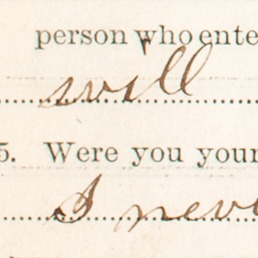 person who ente
will
5. Were you your
I neve